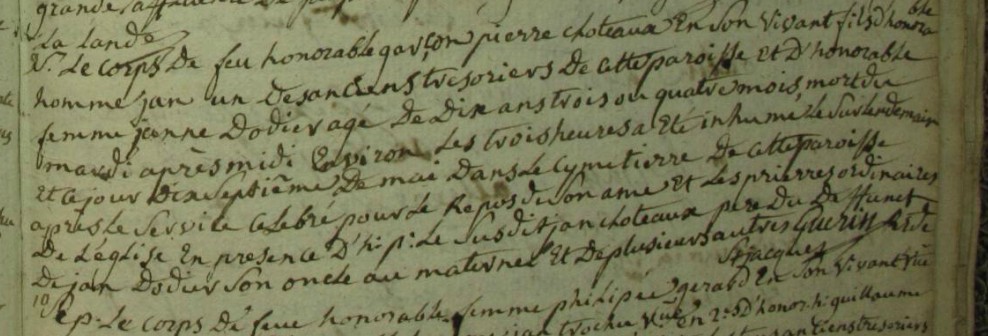 La Lande
Le corps De feu honorable garçon pierre choteaux En Son Vivant fils d'honorable
homme jan un Des anciens tresoriers De cette paroisse et D'honorable
femme janne Dodier agé De Dix ans trois ou quatre mois, mort du
mardi après midi Environ Les trois heures a Eté inhumé Le Surlendemain
Et ce jour dix Septième De mai Dans Le Cymetierre De cette paroisse
après Le Service Celebré pour Le Repos de Son ame Et Les prierres ordinaires
De L'église En presence D'h: p: Le Susdit jan choteaux pere Du Deffunct
De jan Dodier Son oncle au maternel Et De plusieurs autres Guerin
St jacques
10 Le corps De feue honorable femme philipee gerard En Son Vivant
jan trochu en 2.es d'honor. h: guillaume
anciens tresoriers